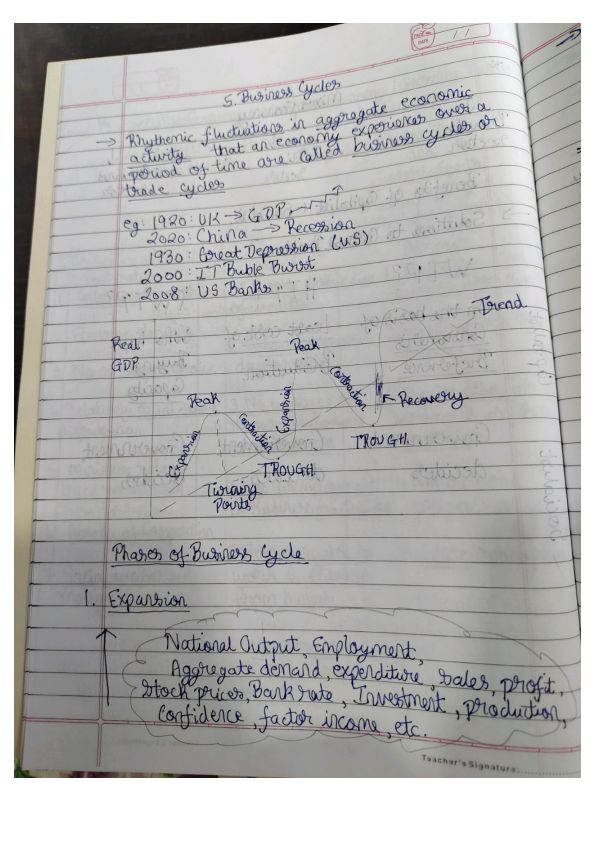 PAGE NO.
DATE / /
5. Business Cycles
→ Rhythemic fluctuations in aggregate economic
activity that an economy experiences over a
period of time are called business cycles or
trade cycles
eg: 1920: UK → GDP
2020: China → Recession
1930: Great Depression (US)
2000: IT Buble Burst
2008: US Banks
Real
GDP
Trend
Peak
Peak
Contraction
Recovery
Expansion
Contraction
Expansion
TROUGH
TROUGH
Turning
Points
Phases of Business Cycle
1. Expansion
National Output, Employment,
Aggregate demand, expenditure, sales, profit,
Stock prices, Bank rate, Investment, production,
Confidence, factor income, etc.
Teacher's Signature: